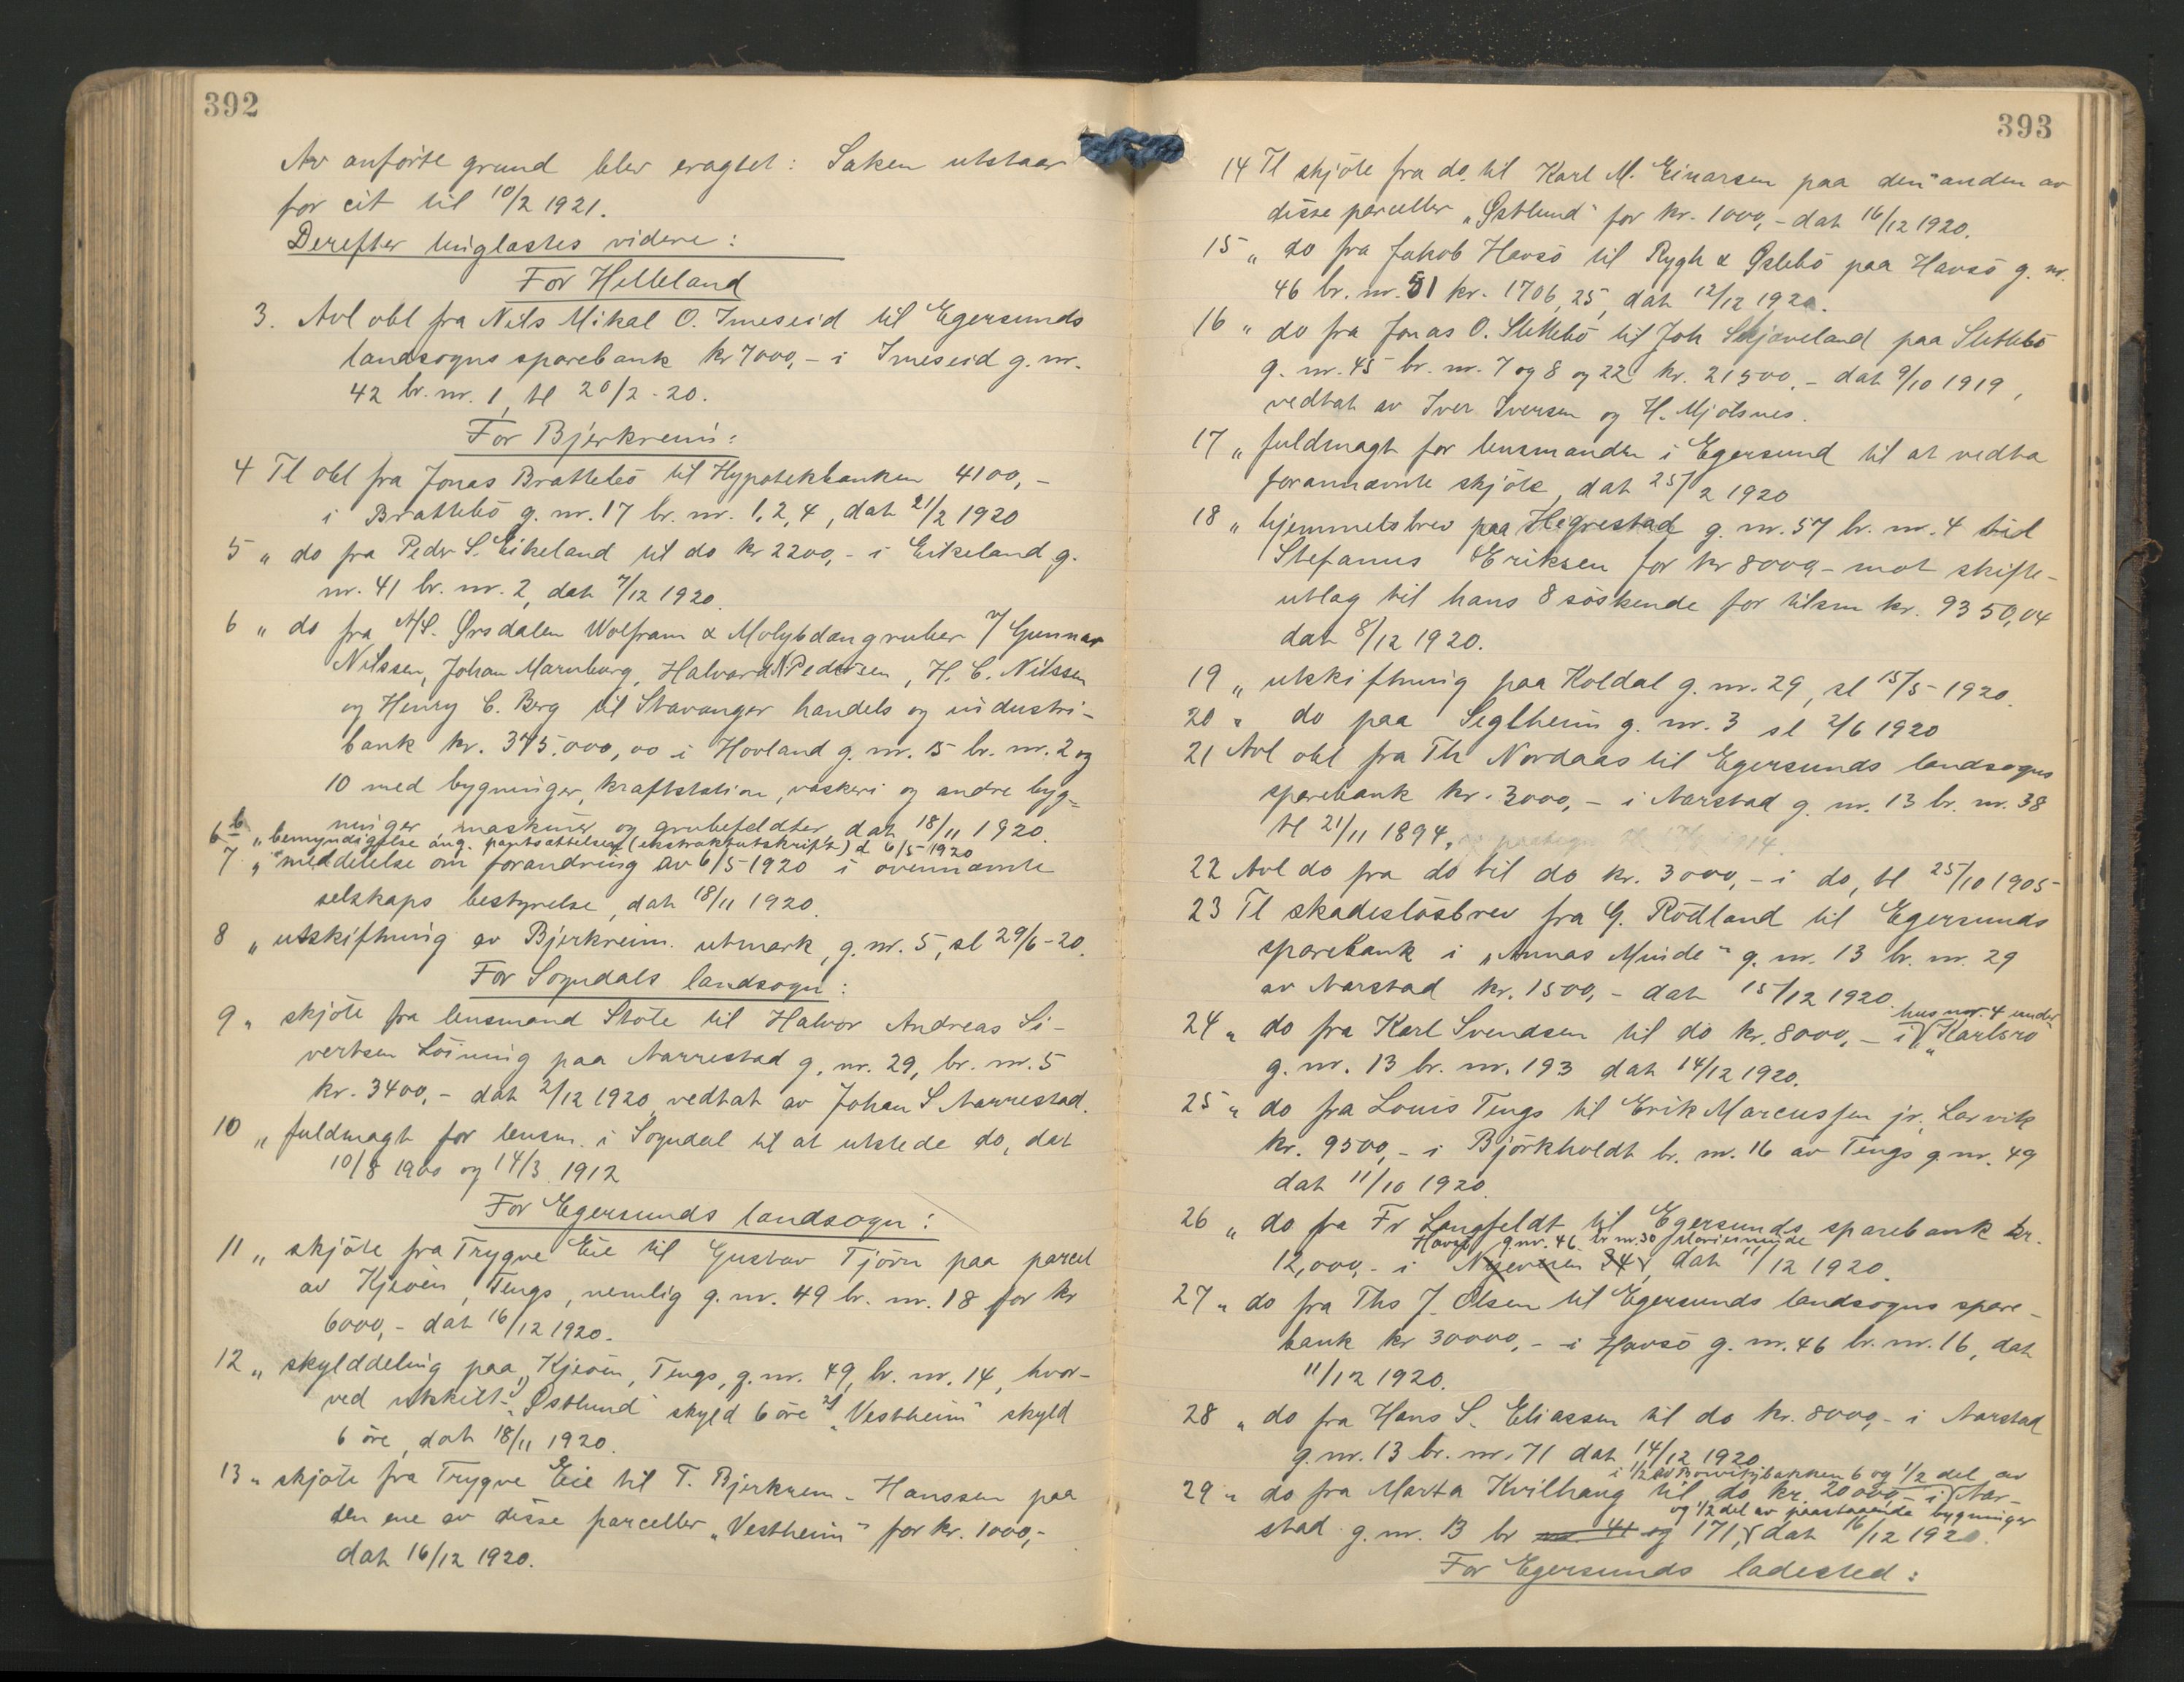 392
Av anförte grund blev eragtet: Saken utstaar
for eit til 10/2 1921.
Derefter tinglæstes videre:
For Helleland
3. Avl obl fra Nils Mikal O. Imeseid til Egersunds
landsogns sparebank kr 7000,- i Imeseid g. nr.
42 br. nr. 1, tl 20/2-20.
For Bjerkreim:
4 Tl obl fra Jonas Brattebö til Hypotekbanken 4100,-
i Brattebö g. nr. 17 br. nr. 1, 2, 4, dat 21/2 1920
5 „ do fra Peder S. Eikeland til do kr 2200,- i Eikeland g.
nr. 41 br. nr. 2, dat 7/12 1920.
6 „ do fra A/S. Ørsdalen Wolfram & Molybdængruber v/ Gunnar
Nilssen, Johan Marnburg, Halvard N. Pedersen, H. C. Nilssen
og Henry C. Berg til Stavanger handels og industri-
bank kr. 375.000,00 i Hovland g. nr. 15 br. nr. 2 og
10 med bygninger, kraftstation, vaskeri og andre byg=
ninger, maskiner og grubefeldter, dat 18/11 1920.
6 b „ bemyndigelse ang. pantsættelsen (ekstraktutskrift) d 6/5 1920
7 „ meddelelse om forandring av 6/5 1920 i ovennævnte
selskaps bestyrelse, dat 18/11 1920.
8 „ utskiftning av Bjerkreim utmark, g. nr. 5, sl 29/6-20.
For Sogndals landsogn:
9 „ skjöte fra lensmand Stöle til Halvor Andreas Si-
vertsen Löining paa Narrestad g. nr. 29, br. nr. 5
kr. 3400,- dat 2/12 1920, vedtat av Johan S Narrestad.
10 „ fuldmagt for lensm. i Sogndal til at utstede do, dat
10/8 1900 og 14/3 1912
For Egersunds landsogn:
11 „ skjöte fra Trygve Eie til Gustav Tjörn paa parcel
av Kjeöin, Tengs, nemlig g. nr. 49 br. nr. 18 for kr
6000,- dat 16/12 1920.
12 „ skylddeling paa „Kjeöin, Tengs, g. nr. 49, br. nr. 14, hvor-
ved utskilt „Østlund" skyld 6 öre 21 „Vestheim" skyld
6 öre, dat 18/11 1920.
13 „ skjöte fra Trygve Eie til T. Bjerkrem-Hanssen paa
den ene av disse parceller „Vestheim" for kr. 1000,-
dat 16/12 1920.
393
14 Tl skjöte fra do. til Karl M. Einarsen paa den anden av
disse parceller „Østlund" for kr. 1000,- dat 16/12 1920.
15 „ do fra Jakob Havsö til Rygh & Øslebö paa Havsö g. nr.
46 br. nr. 51 kr. 1706,25, dat 12/12 1920.
16 „ do fra Jonas O. Slettebö til Joh Skjæveland paa Slettebö
g. nr. 45 br. nr. 7 og 8 og 22 kr. 21500,- dat 9/10 1919,
vedtat av Iver Iversen og H. Mjölsnes.
17 „ fuldmagt for lensmanden i Egersund til at vedta
forannævnte skjöte, dat 25/2 1920
18 „ hjemmelsbrev paa Hegrestad g. nr. 57 br. nr. 4 til
Stefanus Eriksen for kr 8000,- mot skifte-
utlag til hans 8 söskende for tilsm kr. 9350,04
dat 8/12 1920.
19 „ utskiftning paa Koldal g. nr. 29, sl 15/5-1920.
20 „ do paa Seglheim g. nr. 3 sl 2/6 1920
21 Avl obl fra Th Nordaas til Egersunds landsogns
sparebank kr. 3000,- i Aarstad g. nr. 13 br. nr. 38
tl 21/11 1894,
22 Avl do fra do til do kr. 3000,- i do, tl 25/10 1905-
23 Tl skadeslösbrev fra G. Rödland til Egersunds
sparebank i „Annas Minde" g. nr. 13 br. nr. 29
av Aarstad kr. 1500,- dat 15/12 1920.
hus nr. 4 under
24 „ do fra Karl Svendsen til do kr. 8000,- i „Karlsro
g. nr. 13 br. nr. 193 dat 14/12 1920.
25 „ do fra Louis Tengs til Erik Marcussen jr, Larvik
kr. 9500,- i Björkholdt br. nr. 16 av Tengs g. nr. 49
dat 11/10 1920.
26 „ do fra Fr Langfeldt til Egersunds sparebank kr.
Havsö g. nr. 46 br nr. 30 Mariesminde
12,000,- i Nyeveien 34, dat 11/12 1920.
27 „ do fra Ths J. Olsen til Egersunds landsogns spare-
bank kr 30000,- i Havsö g. nr. 46 br. nr. 16, dat
11/12 1920.
28 „ do fra Hans S. Eliassen til do kr. 8000,- i Aarstad
g. nr. 13 br. nr. 71 dat 14/12 1920
i 1/2 av 6 og 1/2 del av
29 „ do fra Marta Kvilhaug til do kr. 20000,- i Aar-
og 1/2 del av paastaaende bygninger
stad g. nr. 13 br nr. 41 og 171, dat 16/12 1920.
For Egersunds ladested: